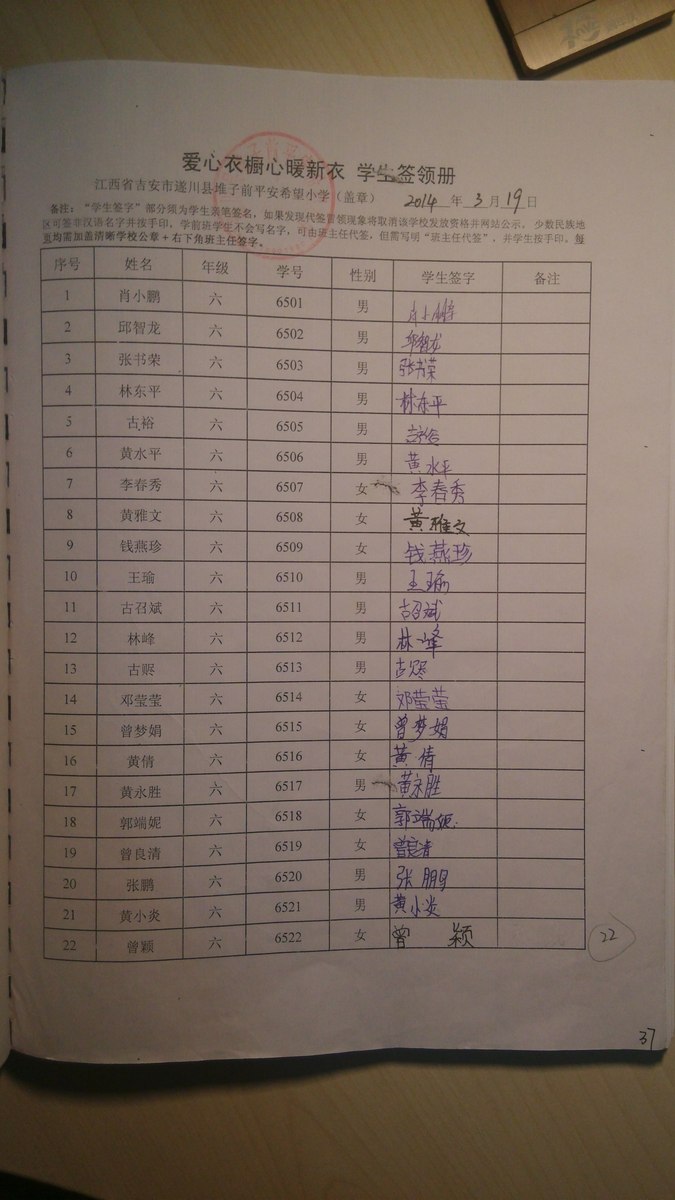 爱心衣橱心暖新衣 学生签领册
江西省吉安市遂川县堆子前平安希望小学（盖章） 2014 年 3 月 19 日
备注：“学生签字”部分须为学生亲笔签名，如果发现代签冒领现象将取消该学校发放资格并网站公示。少数民族地
区可签非汉语名字并按手印。学前班学生不会写名字，可由班主任代签，但需写明“班主任代签”，并学生按手印。每
页均需加盖清晰学校公章+右下角班主任签字。
序号 姓名 年级 学号 性别 学生签字 备注
1 肖小鹏 六 6501 男 肖小鹏
2 邱智龙 六 6502 男 邱智龙
3 张书荣 六 6503 男 张书荣
4 林东平 六 6504 男 林东平
5 古裕 六 6505 男 古裕
6 黄水平 六 6506 男 黄水平
7 李春秀 六 6507 女 李春秀
8 黄雅文 六 6508 女 黄雅文
9 钱燕珍 六 6509 女 钱燕珍
10 王瑜 六 6510 男 王瑜
11 古召斌 六 6511 男 古召斌
12 林峰 六 6512 男 林峰
13 古赆 六 6513 男 古赆
14 邓莹莹 六 6514 女 邓莹莹
15 曾梦娟 六 6515 女 曾梦娟
16 黄倩 六 6516 女 黄倩
17 黄永胜 六 6517 男 黄永胜
18 郭端妮 六 6518 女 郭端妮
19 曾良清 六 6519 女 曾良清
20 张鹏 六 6520 男 张鹏
21 黄小炎 六 6521 男 黄小炎
22 曾颖 六 6522 女 曾颖
22
37